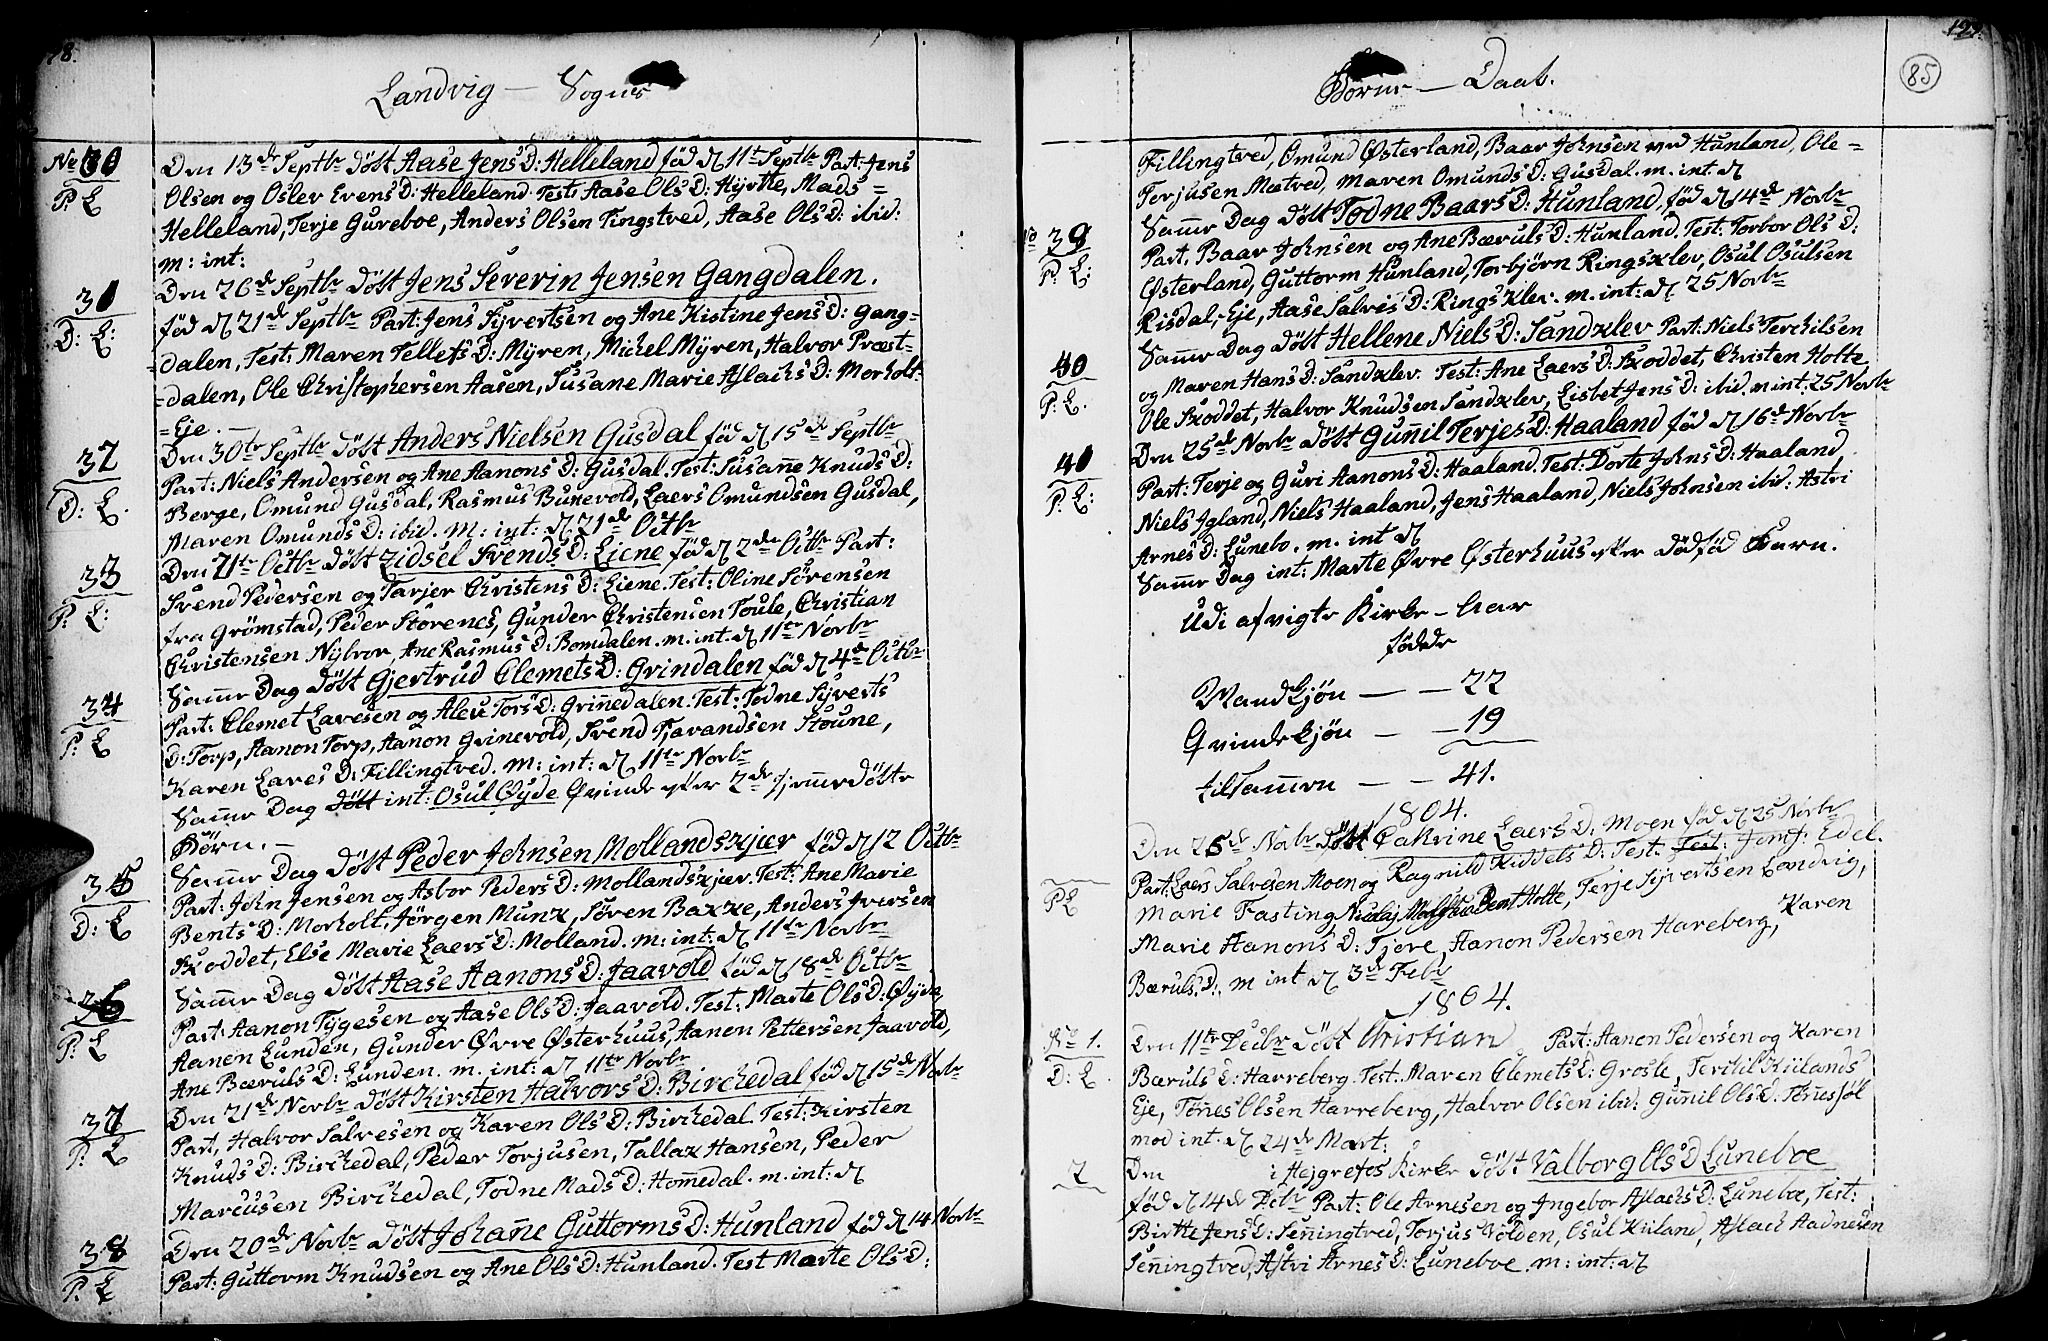 Landvig — Sogns
No 30
P: L
Den 13de Septbr döbt Aase JensD: Helleland föd d 11te Septbr Part: Jens
Olsen og Oslev EvensD: Helleland Test: Aase OlsD: Hyrtte, Mads =
Helleland, Terje Gureboe, Anders Olsen Tingstved, Aase OlsD: ibid:
m: int:
31
D: L:
Den 26de Septbr döbt Jens Severin Jensen Gangdalen.
föd d 21de Septbr Part: Jens Syvertsen og Ane Kistine JensD: Gang=
=dalen, Test: Maren TellefsD: Myren, Michel Myren, Halvor Præst=
dalen, Ole Christophersen Aasen, Susane Marie AslachsD: Morholt=
=Eje.—
32
D: L.
Den 30te Septbr döbt Anders Nielsen Gusdal föd d 15de Septbr
Part: Niels Andersen og Ane AanonsD: Gusdal. Test: Susanne KnudsD:
Berge, Omund Gusdal, Rasmus Bunevold, Laers Omundsen Gusdal,
Maren OmundsD: ibid. m: int: d 21de Octbr
33
P: L:
Den 21te Octbr döbt Zidsel SvendsD: Eiene föd d 2den Octbr Part:
Svend Pedersen og Tarjer ChristensD: Eiene. Test: Oline Sörensen
fra Grömstad, Peder Störenes, Gunder Christensen Toule, Christian
Christensen Nylvor, Ane RasmusD: Bomdalen. m. int. d 11te Novbr
34
P: L
Samme Dag döbt Gjertrud ClemetsD: Grindalen föd d 4de Octbr
Part: Clemet Lavesen og Aleu TorsD: Grinnedalen. Test: Todne Syverts
D: Torp, Aanon Torp, Aanon Grinevold, Svend Tjavandsen Stoune,
Karen LavesD: Fillingtved. m: int: d 11te Novbr
Samme Dag döbt int: Osul Øyde Qvinde efter 2de hjemme döbte
Börn.—
35
D: L
Samme Dag döbt Peder Johnsen Mollandskjær föd d 12 Octbr
Part: John Jensen og Asbor PedersD: Mollandskjær. Test: Ane Marie
BentsD: Morholt, Jörgen Munk, Sören Bakke, Anders Iversen
Skoddet, Else Marie LaersD: Molland. m: int: d 11te Novbr
36
P: L
Samme Dag döbt Aase AanonsD: Jaavold föd d 18de Octbr
Part: Aanon Tygesen og Aase OlsD: Jaavold. Test: Marte OlsD: Øyde,
Aanon Lunden, Gunder Øvre Østerhuus, Aanon Pettersen Jaavold,
Ane BærulsD: Lunden. m. int: d 11te Novbr
37
P: L
Den 21de Novbr döbt Kirsten HalvorsD: Birchedal föd d 15de Novbr
Part, Halvor Salvesen og Karen OlsD: Birchedal. Test: Kirsten
KnudsD: Birchedal, Peder Torjusen, Tallak Hansen, Peder
Marcusen Birchedal, Todne MadsD: Hommedal. m. int: d
38
P: L
Den 20de Novbr döbt Johanne GuttormsD: Hunland föd d 14 Novbr
Part: Guttorm Knudsen og Ane OlsD: Hunland. Test Marte OlsD:
Börne — Daab.
85
Fillingtved, Omund Østerland, Baar Johnsen Hunland, Ole =
Torjusen Mætved, Maren OmundsD: Gusdal. m. int. d
39
P: L:
Samme Dag döbt Todne BaarsD: Hunland, föd d 14de Novbr
Part. Baar Johnsen og Ane BærulsD: Hunland. Test: Torbor OlsD:
Østerland, Guttorm Hunland, Torbjörn Ringsklev, Osul Osulsen
Risdal,-Eje, Aase SalvisD: Ringsklev. m. int: d 25 Novbr
40
P: L.
Samme Dag döbt Hellene NielsD: Sandklev Part: Niels Terchilsen
og Maren HansD: Sandklev. Test: Ane LaersD: Skoddet, Christen Holte
Ole Skoddet, Halvor Knudsen Sandklev, Lisbet JensD: ibid. m int: 25 Novbr
40
P: L:
Den 25de Novbr döbt Gunnil TerjesD: Haaland föd d 16de Novbr
Part: Terje og Guri AanonsD: Haaland. Test: Dorte JohnsD: Haaland,
Niels Igland, Niels Haaland, Jens Haaland, Niels Johnsen ibid: Astri
ArnesD: Lunebo. m. int d
Samme Dag int: Marte Øvre Østerhuus efter dödföd Barn.
Udi afvigte Kirke-Aar
födede
Mandkjön — — 22
Qvindekjön — — 19
tilsammen — — 41.
1804.
P L
Den 25de Novbr döbt Cathrine LaersD: Moen föd d 25 Novbr
Part: Laers Salvesen Moen og Ragnild KiddelsD: Test: Test: Jomf: Edel.
Marie Fasting, Bent Holte, Terje Syvertsen Landvig,
Marie AanonsD: Tjore, Aanon Pedersen Hareberg, Karen
BærulsD: m int d 3de Febr
1804.
No 1.
D: L.
Den 11te Decbr döbt Christian Part: Aanon Pedersen og Karen
BærulsD: Harreberg. Test. Maren ClemetsD: Grosle, Terkil Kiilands
Eje, Tönnes Olsen Harreberg, Halvor Olsen ibid: Gunnil OlsD: Tönnessöl
mod int. d 24de Mart:
2
Den i Hejgrefos Kirke döbt Valborg OlsD Luneboe
föd d 14de Decbr Part: Ole Arnesen og Ingebor AslachsD: Lunebo, Test:
Birtte JensD: Senningtved, Torjus Volden, Osul Kiiland, Aslach Aadnesen
Senningtved, Astri ArnesD: Luneboe. m: int: d